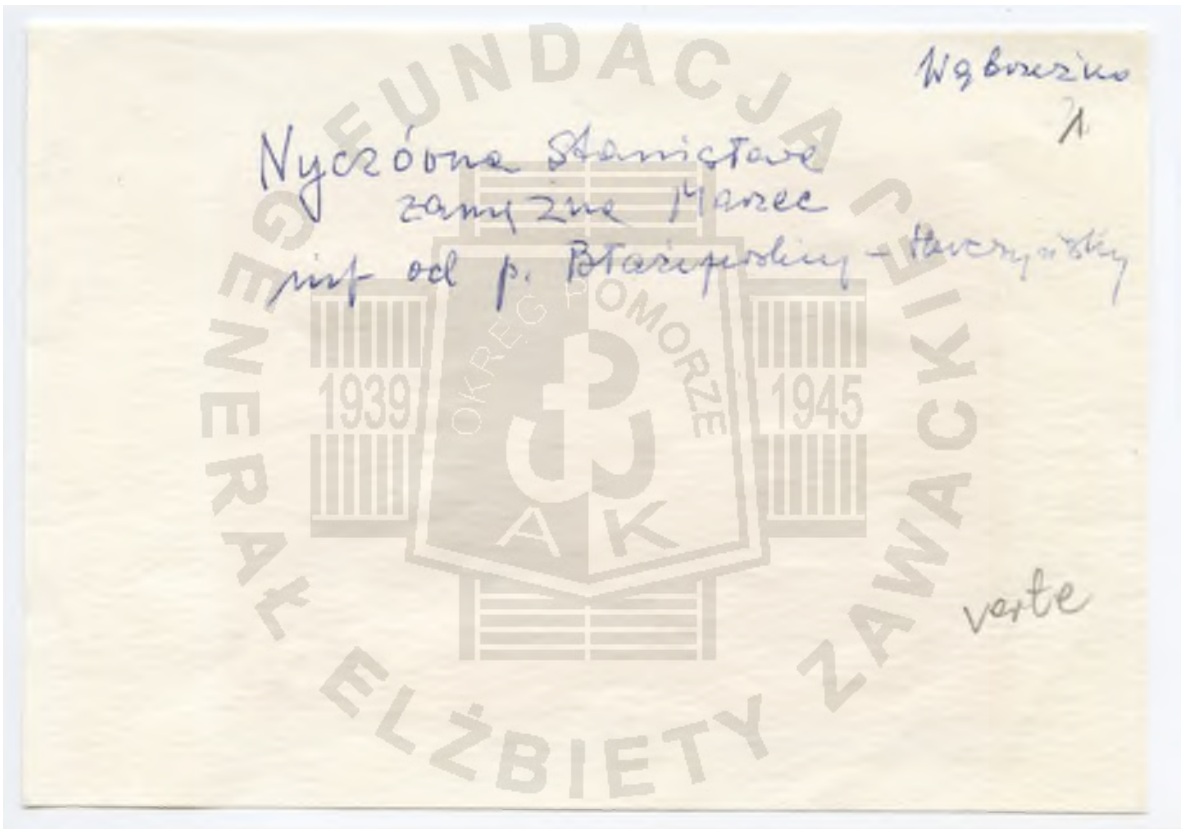 Wąbrzeźno
1
Nyczówna Stanisława
zamężna Marzec
inf od p. Błażejewskiej -
verte
FUNDACJA
GENERAŁ ELŻBIETY ZAWACKIEJ
OKRĘG POMORZE
1939 1945
AK